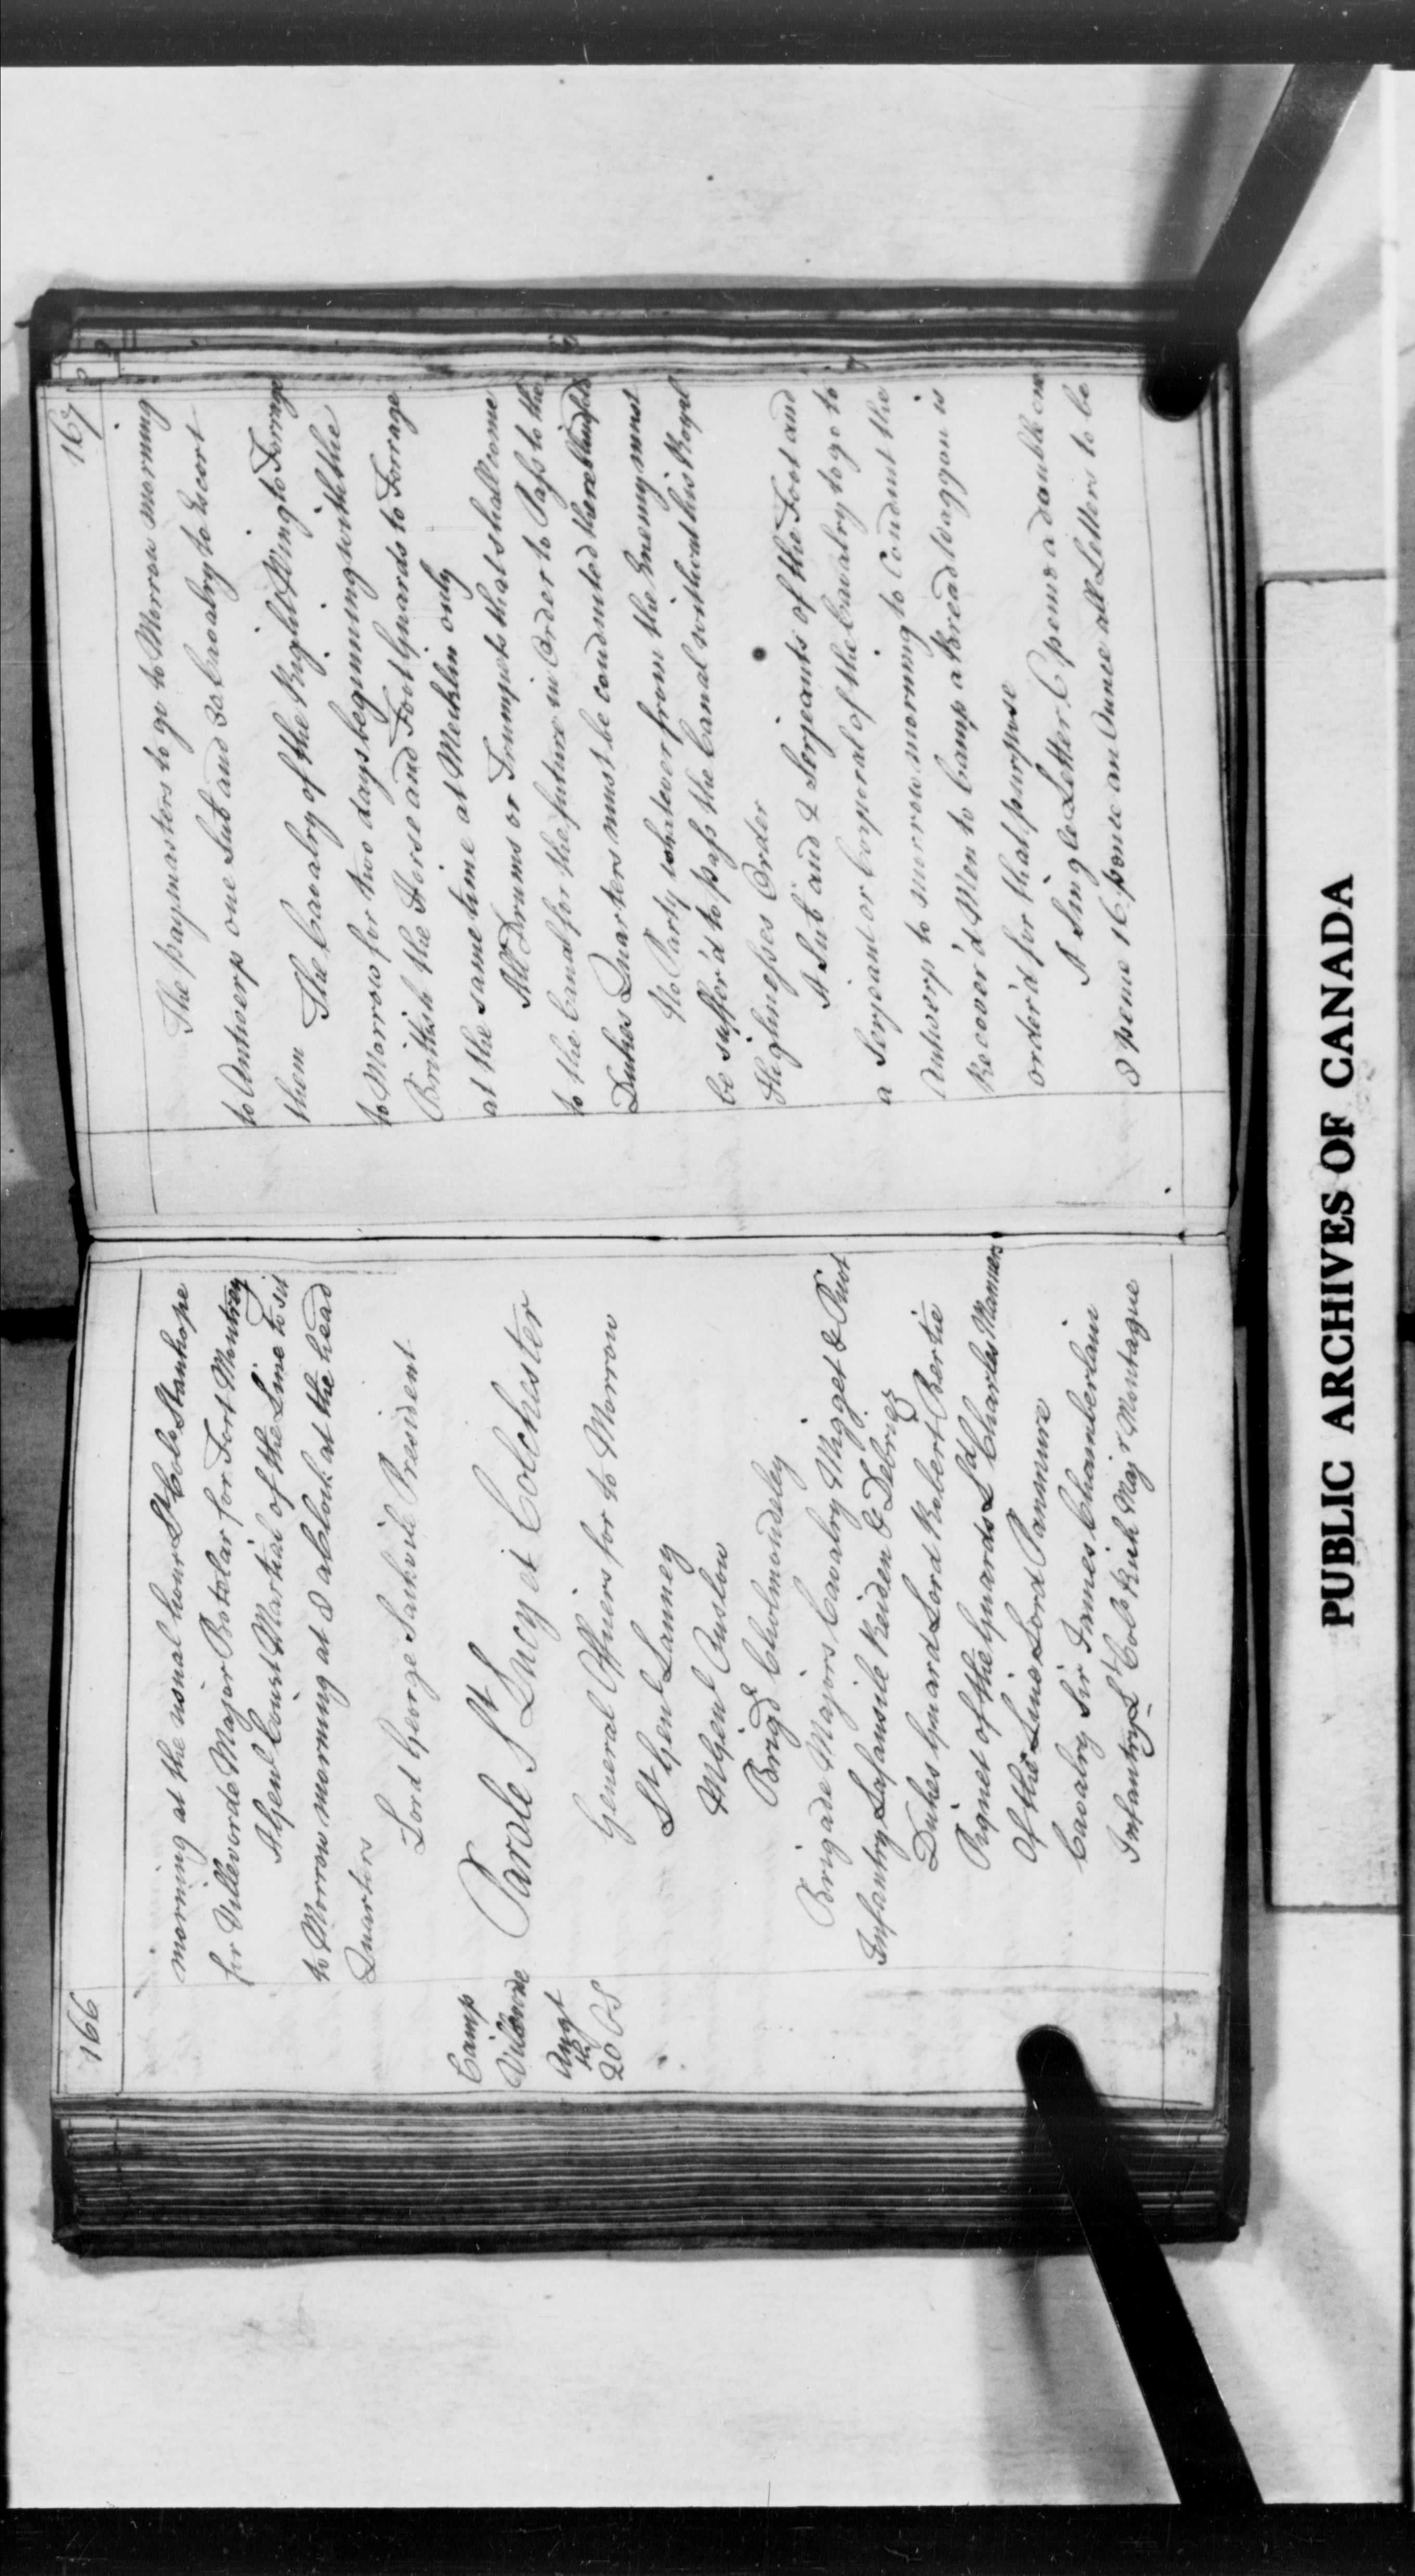 166
morning at the usual hour Lt Colo Stanhope
for Villevorde Major Botelar for Fort
A Genl Court Martial of the Line to sit
to Morrow morning at 8 a Clock at the head
Quarters
Lord George Sackvile President
Camp
Vilvorde
Augt
20th OS
Parole St Lucy et Colchester
General Officers for to Morrow
Lt Genl
M Genl Onslow
Brigdr Cholmondeley
Brigade Majors Cavalry Migget & Puot
Infantry Lasansile Keiden & Debrieg
Dukes Guard Lord Robert Bertie
Piquet of the Guards Ld Charles Manners
Of the Line Lord Panmure
Cavalry Sir James Chamberlain
Infantry Lt Colo Rich Majr Montague
167
The paymasters to go to Morrow morning
to Antwerp one Sub and 30 Cavalry to Escort
them The Cavalry of the Right Wing to Forrage
to Morrow for two days beginning with the
British the Horse and Foot Guards to Forrage
at the same time at Mechlin only
All Drums or Trumpets that shall come
to the Canal for the future in Order to Pass to the
Dukes Quarters must be conducted there blindfold
No Party whatever from the Enemy must
be suffer'd to pass the Canal without his Royal
Highnesses Order
A Sub and 2 Serjeants of the Foot and
a Serjeant or Corporal of the Cavalry to go to
Antwerp to morrow morning to Conduct the
Recover'd Men to Camp a Bread Waggon is
order'd for that purpose
A Single Letter 6 pence a double one
8 pence 16 pence an Ounce all Letters to be
PUBLIC ARCHIVES OF CANADA